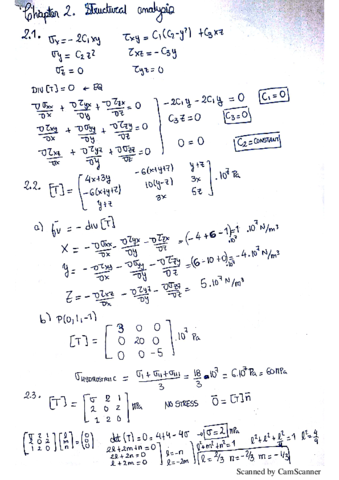 Chapter 2. Structural analysis
2.1. σx = -2C₁xy τxy = C₁(C₂-y²) + C₃xz
σy = C₂z² τxz = -C₃y
σz = 0 τyz = 0
DIV [T] = 0 ← EQ
∂σxx/∂x + ∂τyx/∂y + ∂τzx/∂z = 0 -2C₁y - 2C₁y = 0 C₁ = 0
∂τxy/∂x + ∂σyy/∂y + ∂τzy/∂z = 0 C₃z = 0 C₃ = 0
∂τxz/∂x + ∂τyz/∂y + ∂σzz/∂z = 0 0 = 0 C₂ = CONSTANT
2.2. [T] = [4x+3y -6(x+y+z) y+z
-6(x+y+z) 10(y-z) 3x
y+z 3x 5z] · 10⁷ Pa
a) f̄v = - div [T]
X = -∂σxx/∂x - ∂τyx/∂y - ∂τzx/∂z = (-4+6-1) = 1 · 10⁷ N/m³
Y = -∂τxy/∂x - ∂σyy/∂y - ∂τzy/∂z = (6-10+0) = -4 · 10⁷ N/m³
Z = -∂τxz/∂x - ∂τyz/∂y - ∂σzz/∂z = 5 · 10⁷ N/m³
b) P(0,1,-1)
[T] = [3 0 0
0 20 0
0 0 -5] · 10⁷ Pa
= (σI + σII + σIII)/3 = 18/3 · 10⁷ = 6·10⁷ Pa = 60 MPa
2.3. [T] = [σ 2 1
2 0 2
1 2 0] MPa NO STRESS 0̄ = [T] n̄
det (T) = 0 = 4+4-4σ → σ = 2 MPa
2l+2m+n=0
2l+2n=0
l+2m=0
l=-n
l=-2m
l²+m²+n²=1
l = 2/3 n = -2/3 m = -1/3
Scanned by CamScanner